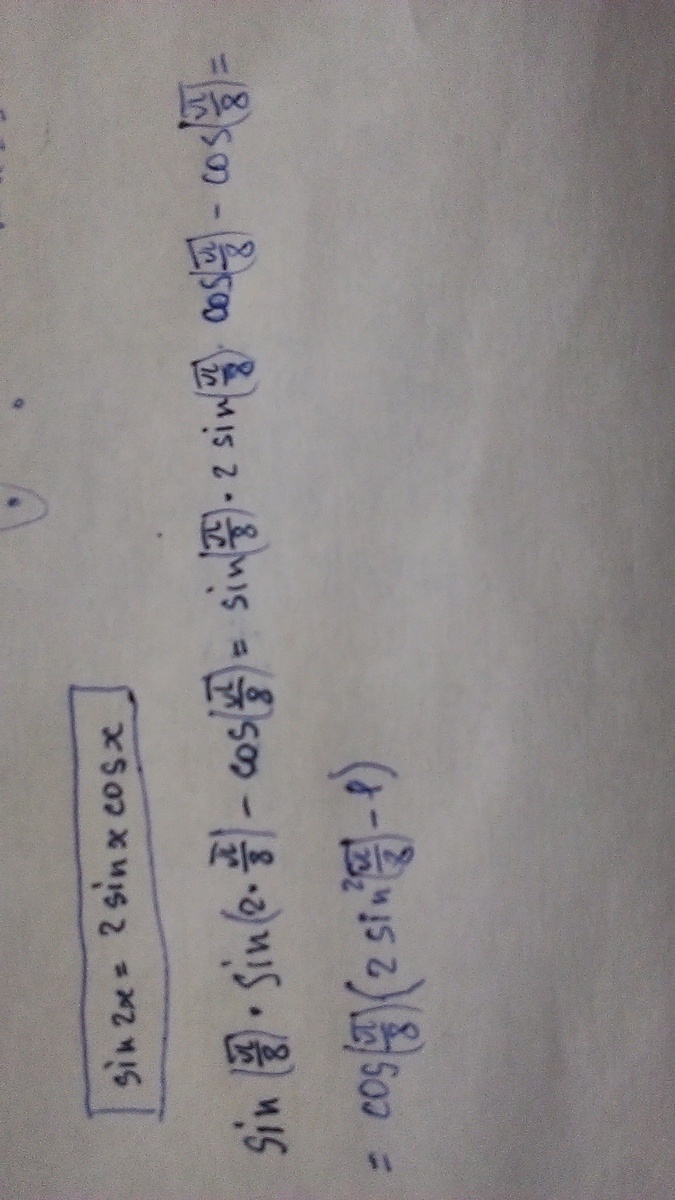 sin 2x = 2 sin x cos x
sin(π/8) · sin(2 · π/8) − cos(π/8) = sin(π/8) · 2 sin(π/8) · cos(π/8) − cos(π/8) =
= cos(π/8)(2 sin²(π/8) − 1)